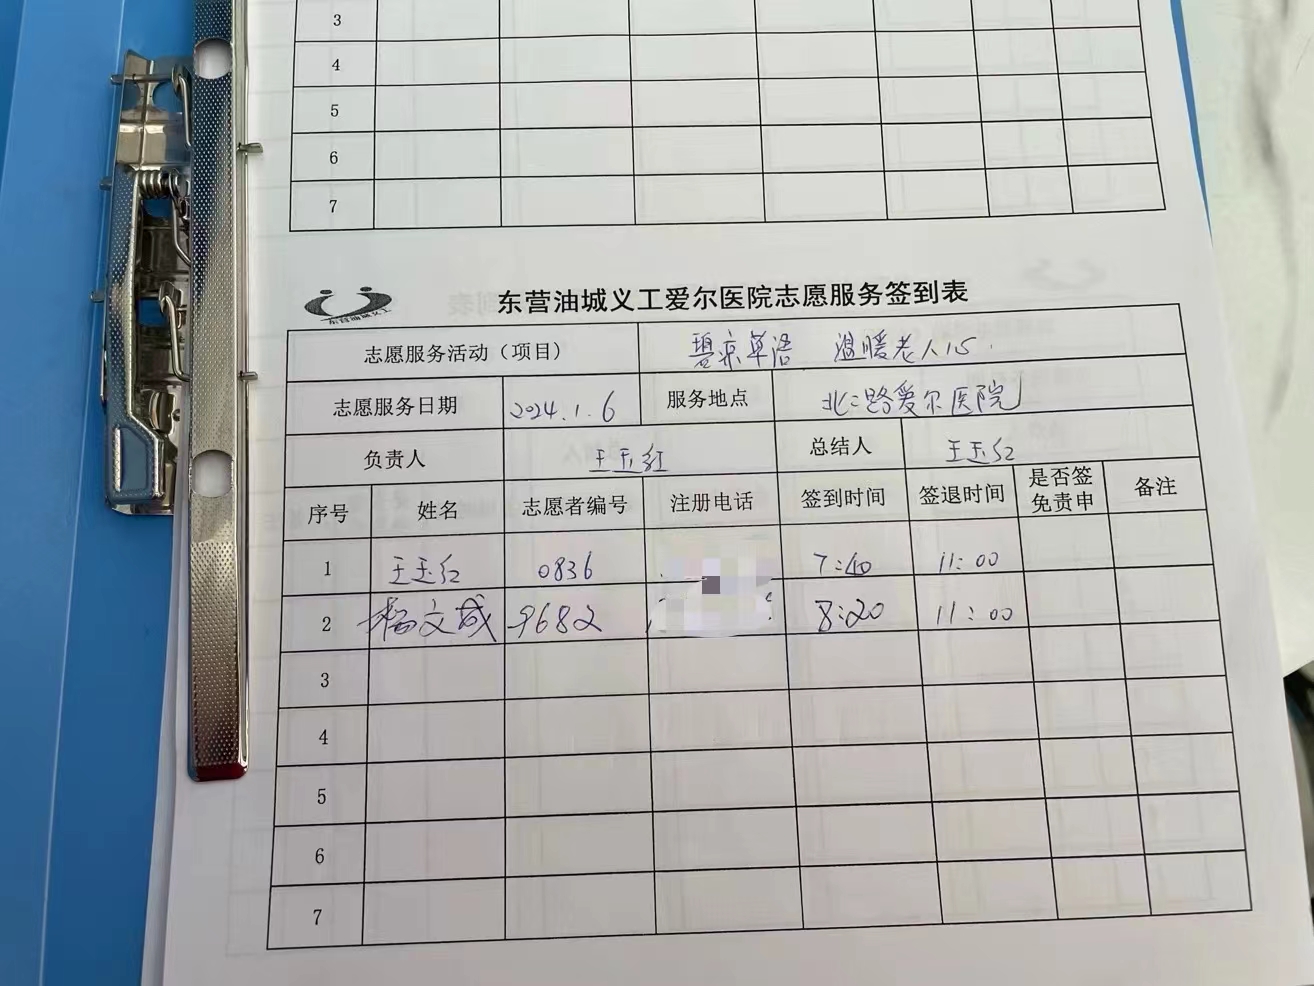 3
4
5
6
7
东营油城义工
东营油城义工爱尔医院志愿服务签到表
志愿服务活动（项目） 温暖老人心.
志愿服务日期 2024.1.6 服务地点 北二路爱尔医院
负责人 王玉红 总结人 王玉红
序号 姓名 志愿者编号 注册电话 签到时间 签退时间 是否签免责申 备注
1 王玉红 0836 7:40 11:00
2 杨文斌 9682 8:20 11:00
3
4
5
6
7